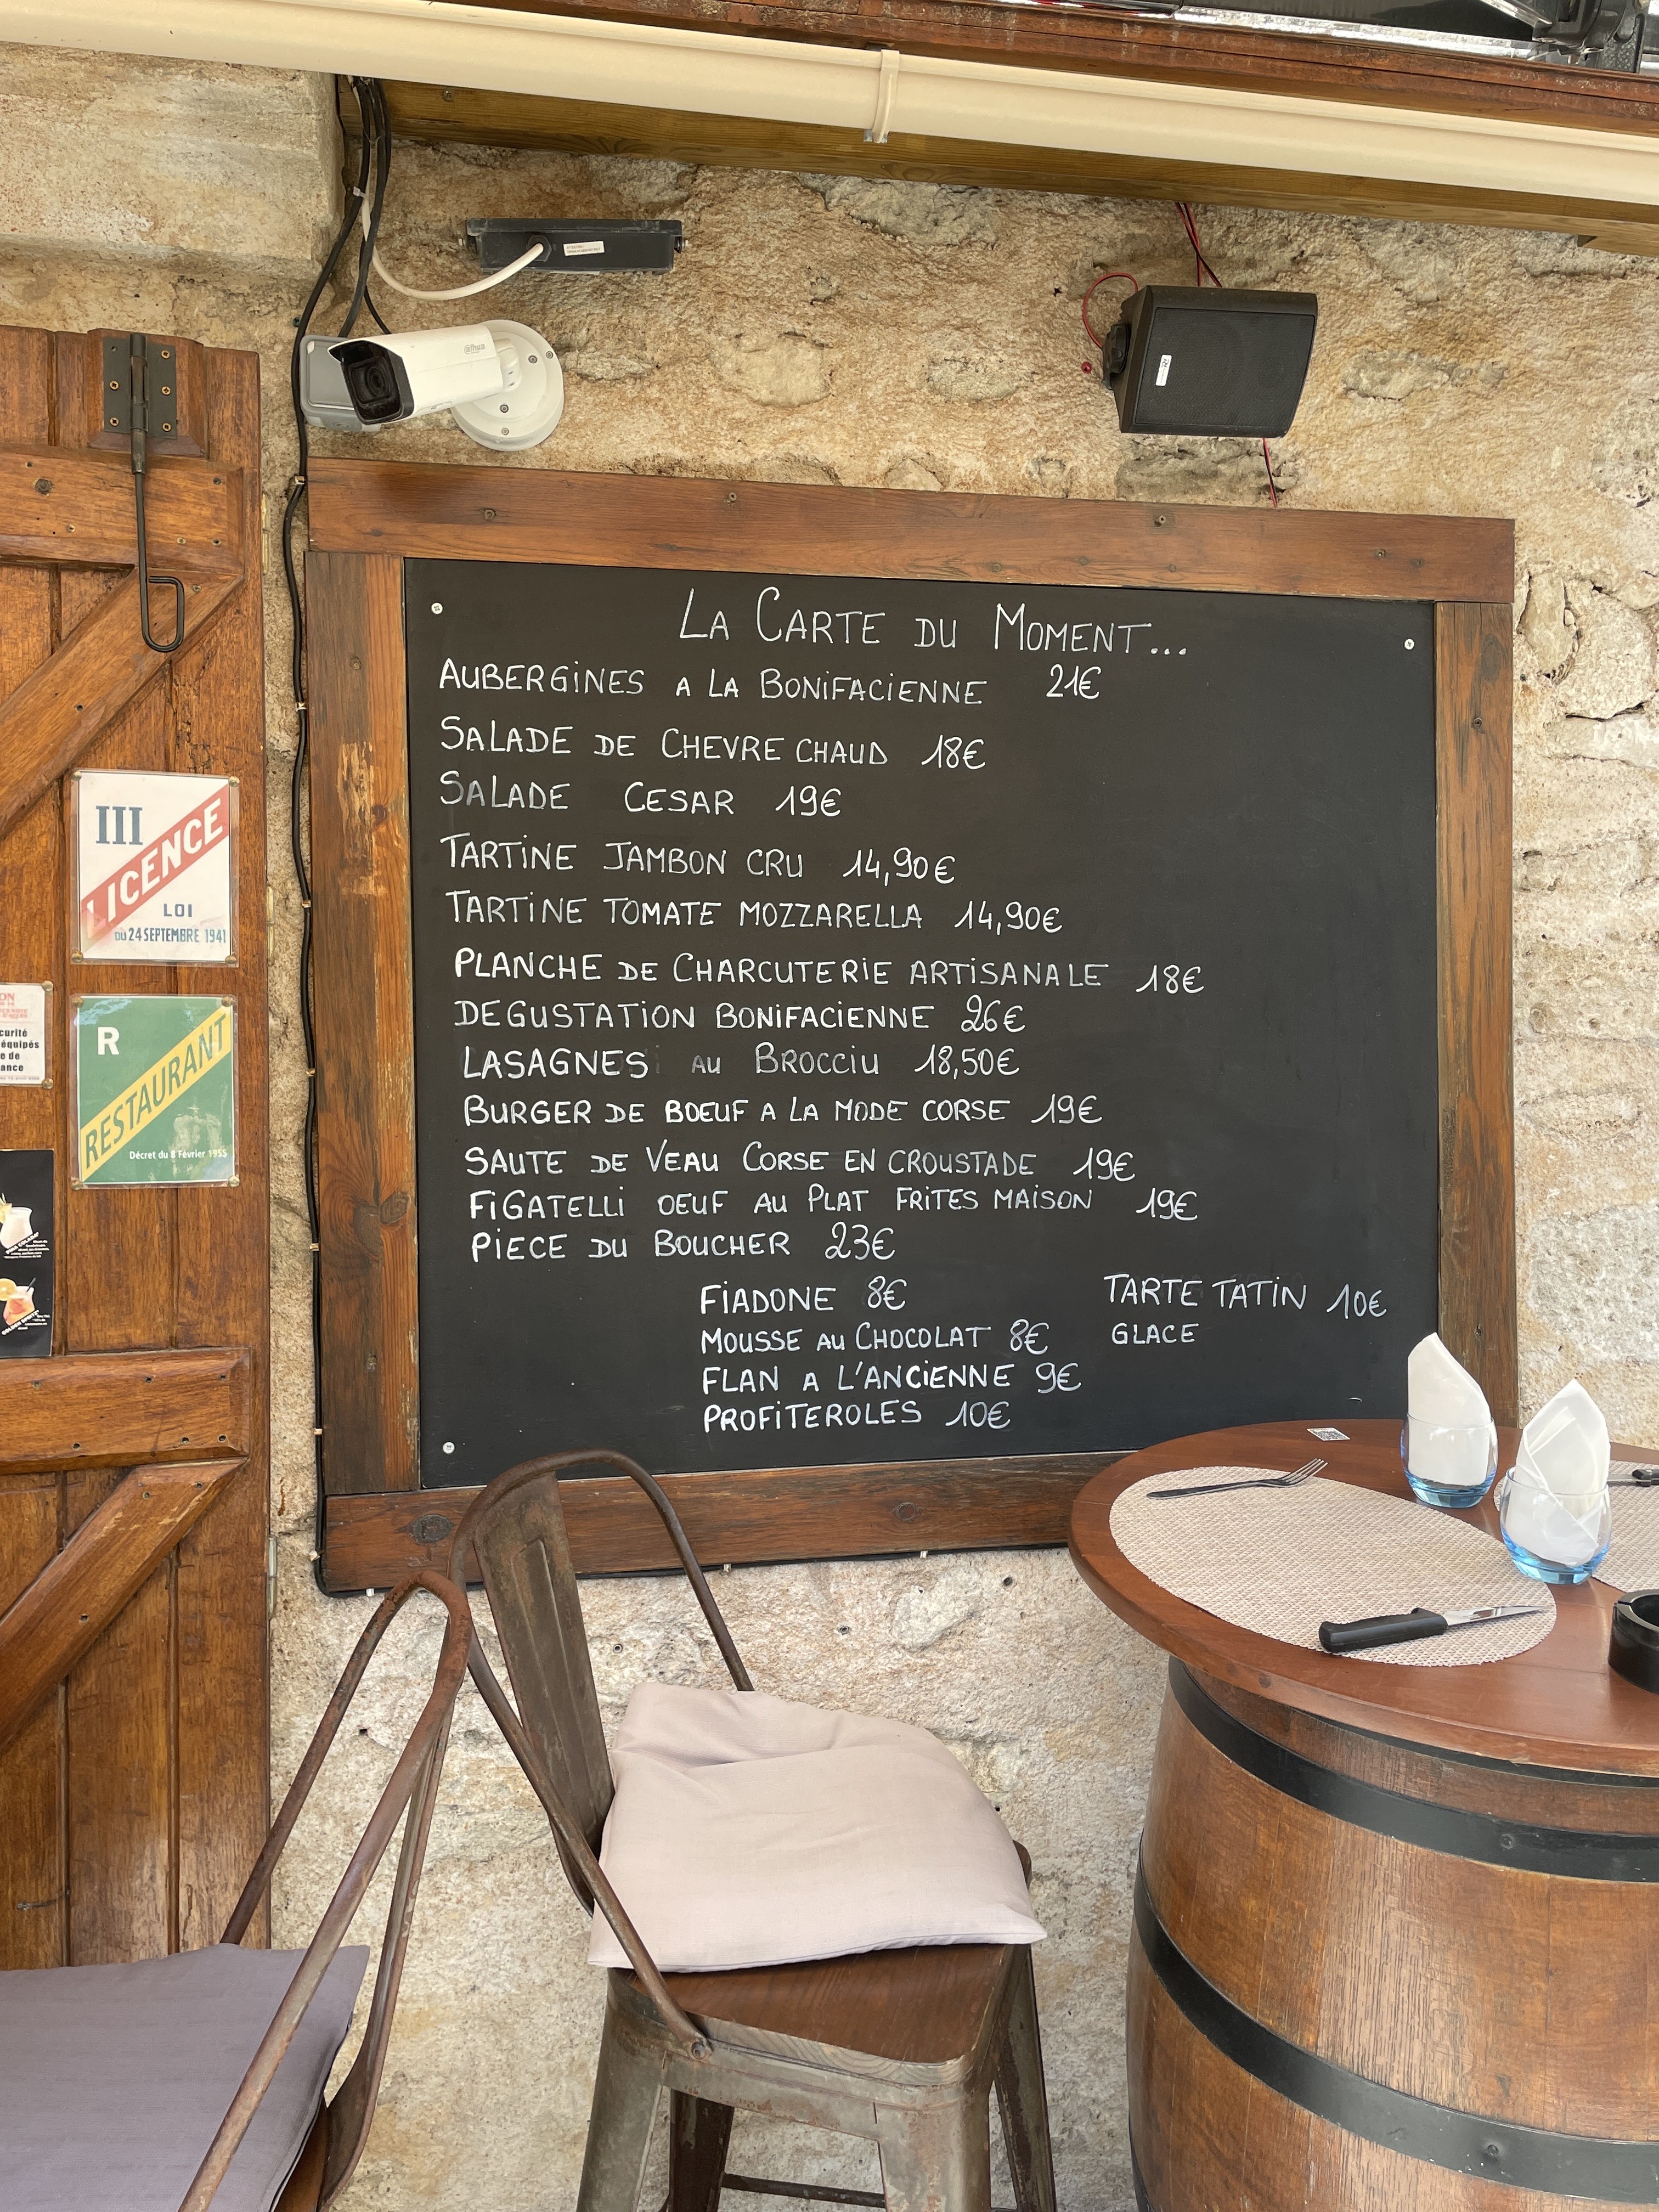 alhua
LA CARTE DU MOMENT...
AUBERGINES A LA BONIFACIENNE 21€
SALADE DE CHEVRE CHAUD 18€
SALADE CESAR 19€
TARTINE JAMBON CRU 14,90€
TARTINE TOMATE MOZZARELLA 14,90€
PLANCHE DE CHARCUTERIE ARTISANALE 18€
DEGUSTATION BONIFACIENNE 26€
LASAGNES AU BROCCIU 18,50€
BURGER DE BOEUF A LA MODE CORSE 19€
SAUTE DE VEAU CORSE EN CROUSTADE 19€
FIGATELLI OEUF AU PLAT FRITES MAISON 19€
PIECE DU BOUCHER 23€
FIADONE 8€
MOUSSE AU CHOCOLAT 8€
FLAN A L'ANCIENNE 9€
PROFITEROLES 10€
TARTE TATIN 10€
GLACE
III
LICENCE
LOI
DU 24 SEPTEMBRE 1941
R
RESTAURANT
Décret du 8 Février 1955
ON
curité
équipés
e de
ance